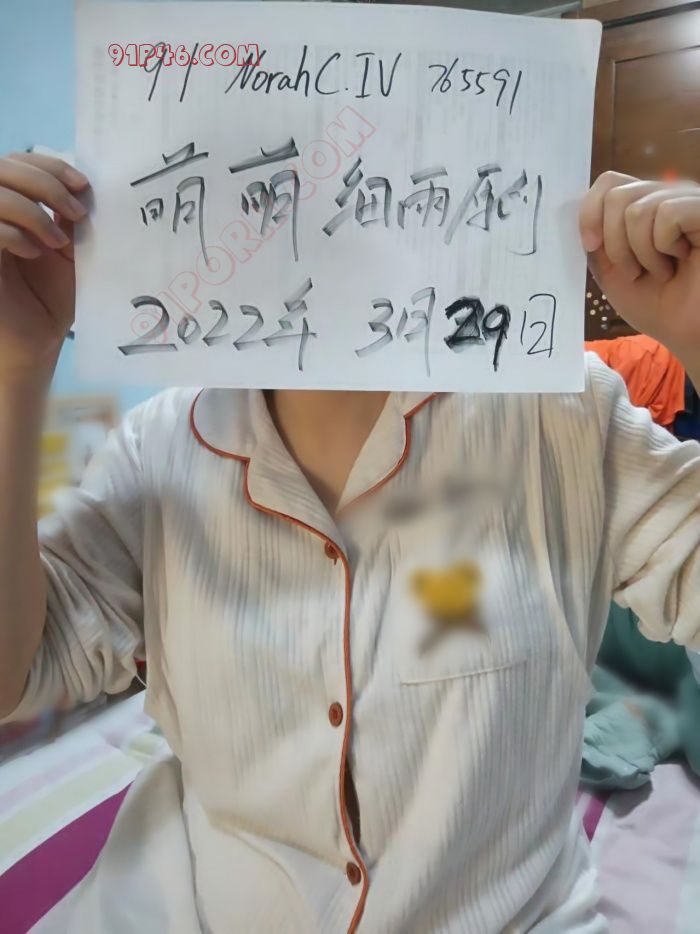 91P46.COM
91 NorahC.IV 765591
萌萌 细雨
91PORN.COM
2022年 3月29日